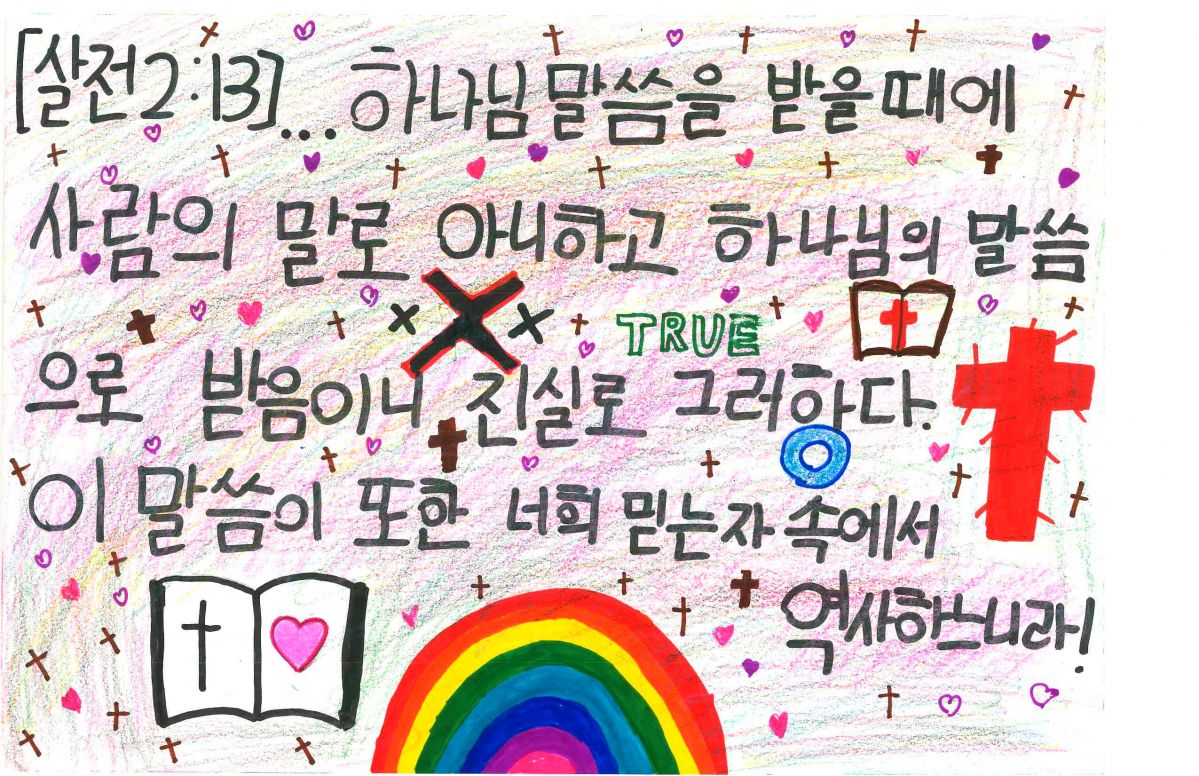 [살전2:13]...하나님 말씀을 받을때에
사람의 말로 아니하고 하나님의 말씀
TRUE
으로 받음이니 진실로 그러하다.
이 말씀이 또한 너희 믿는자 속에서
역사하느니라!